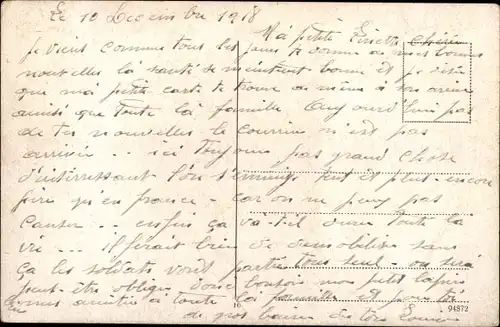 Le 10 Décembre 1918
Ma petite Ginette chérie
je viens comme tous les jours te donner de mes bonnes
nouvelles la santé se maintient bonne et je désire
que ma petite carte te trouve de même à son arrivée
ainsi que toute la famille Aujourd'hui pas
de tes nouvelles le courrier n'est pas
arrivé .. ici toujours pas grand chose
d'intéressant l'on s'ennuie tout et plus encore
pire qu'en france - car on ne peux pas
causer .. enfin ça va-t-il durer toute la
vie ... il ferait bien de démobiliser sans
ça les soldats vont partir tous seul - on sera
peut-être obligé Donc bonsoir mon petit lapin
Bonnes amitiés à toute la famille et pour toi
de gros baisers de ton Louis
16
94872